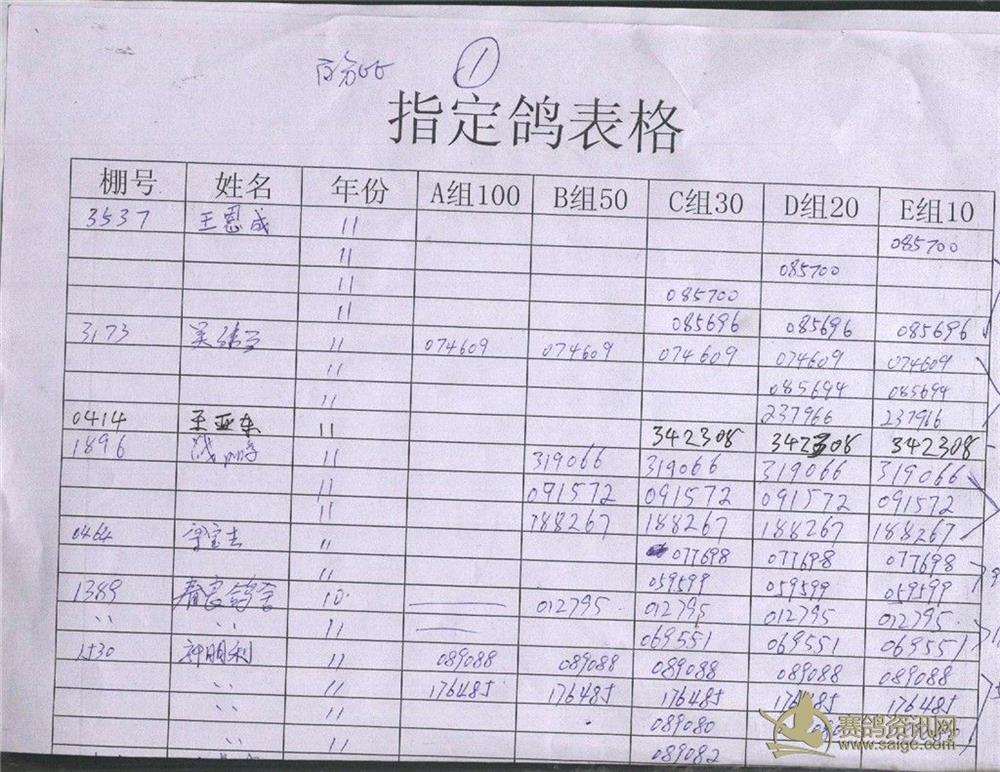 百分比 ①
指定鸽表格
棚号 姓名 年份 A组100 B组50 C组30 D组20 E组10
3537 王恩成 11 085700
11 085700
11 085700
11 085696 085696 085696
3173 11 074609 074609 074609 074609 074609
11 085694 085694
11 237966 237966
0414 王亚东 11 342308 342308 342308
1896 11 319066 319066 319066 319066
11 091572 091572 091572 091572
11 188267 188267 188267 188267
0464 11 077698 077698 077698
11 059599 059599 059599
1389 春良鸽舍 10 012795 012795 012795 012795
〃 〃 11 069551 069551 069551
1530 神朋利 11 089088 089088 089088 089088 089088
〃 11 176485 176485 176485 176485 176485
〃 11 089080
〃 11 089082
赛鸽资讯网
www.saige.com